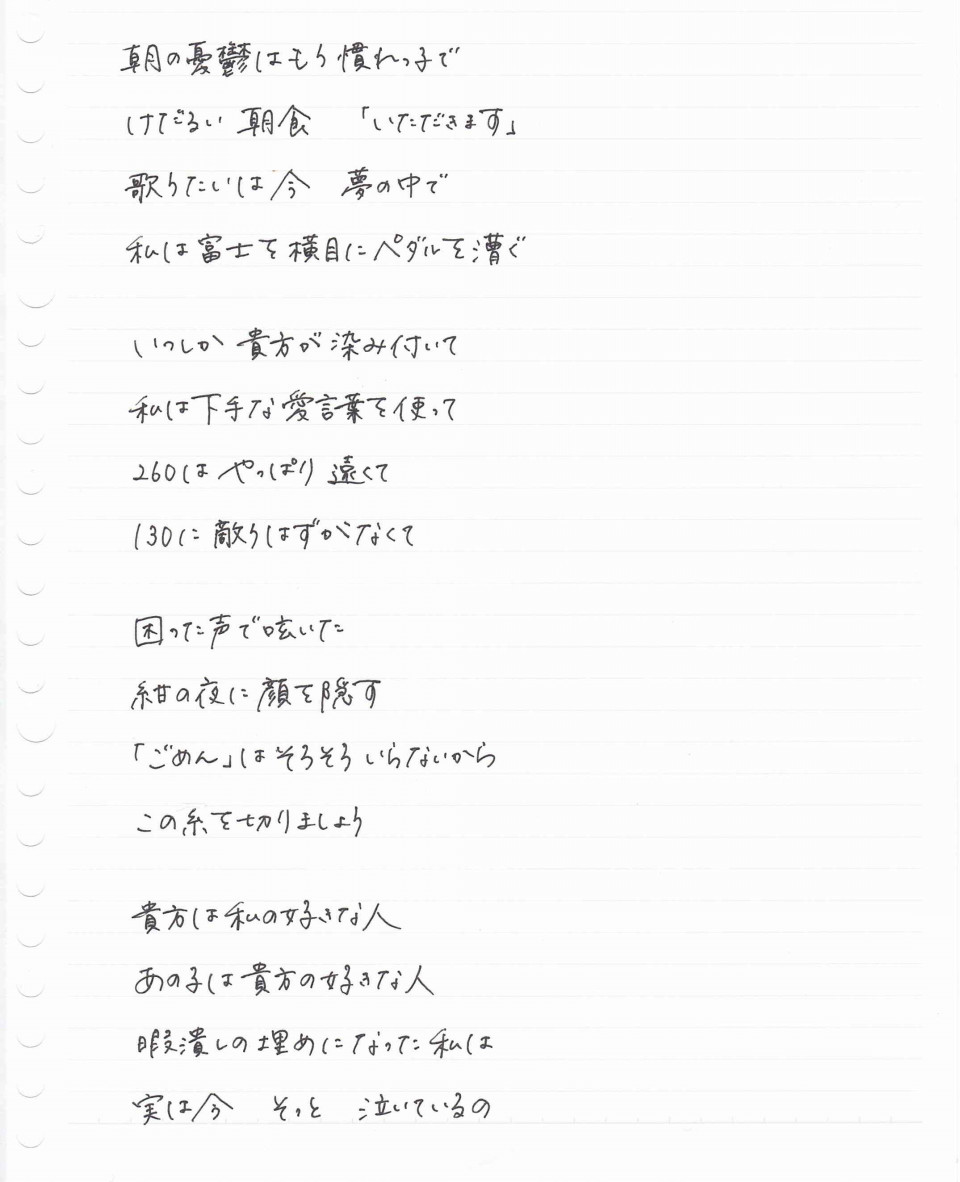 朝の憂鬱はもう慣れっ子で
けだるい 朝食 「いただきます」
歌うたいは今 夢の中で
私は富士を横目にペダルを漕ぐ
いつしか 貴方が染み付いて
私は下手な愛言葉を使って
260は やっぱり 遠くて
130に 敵うはずがなくて
困った声で呟いた
紺の夜に顔を隠す
「ごめん」はそろそろ いらないから
この糸を切りましょう
貴方は私の好きな人
あの子は貴方の好きな人
暇潰しの埋めになった私は
実は今 そっと 泣いているの